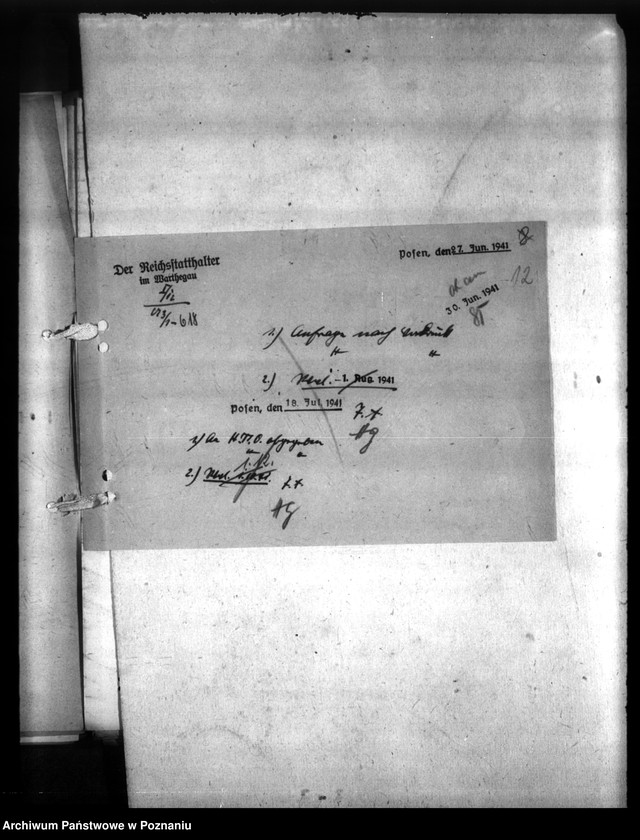 Der Reichsstatthalter
im Warthegau
I/12
213/1-618
Posen, den 27. Jun. 1941
8
12
30. Jun. 1941
1.) Anfrage nach
2.) Wvl. 1. Aug. 1941
Posen, den 18. Jul. 1941
1) An H.T.O. abgegeben
2.) Wvl.
Archiwum Państwowe w Poznaniu